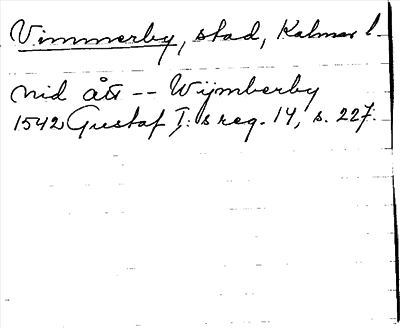 Vimmerby, stad, Kalmar l.
nid åtr -- Wijmberby
1542 Gustaf I:s reg. 14, s. 227.